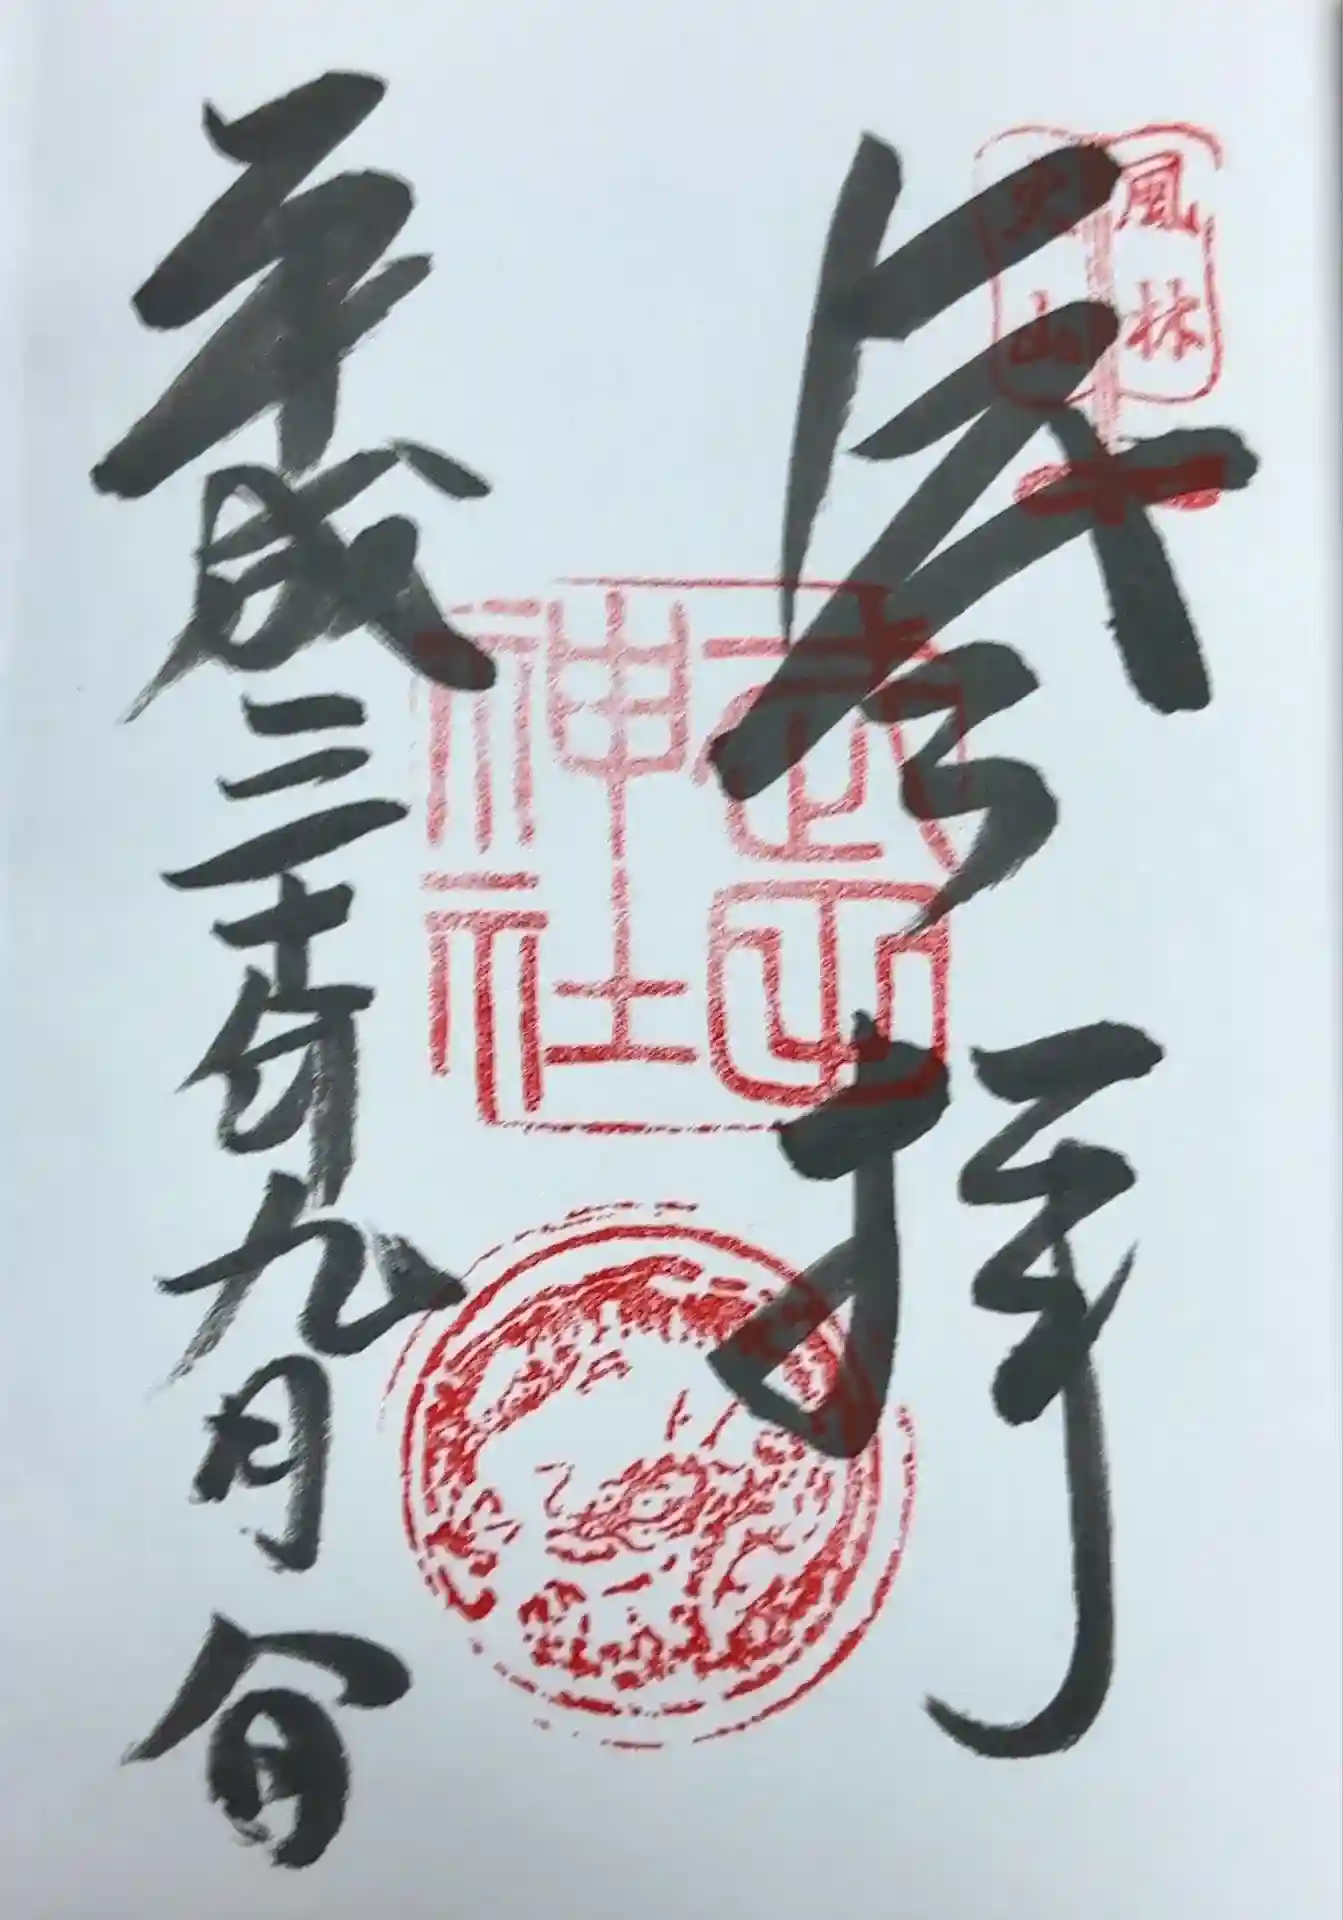 奉拝
風林
火山
武田
神社
平成三十年九月八日